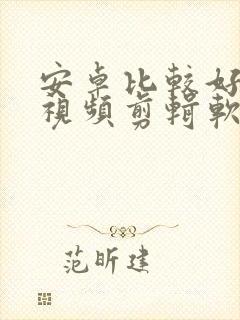 安卓比較好
視頻剪輯軟
范昕建